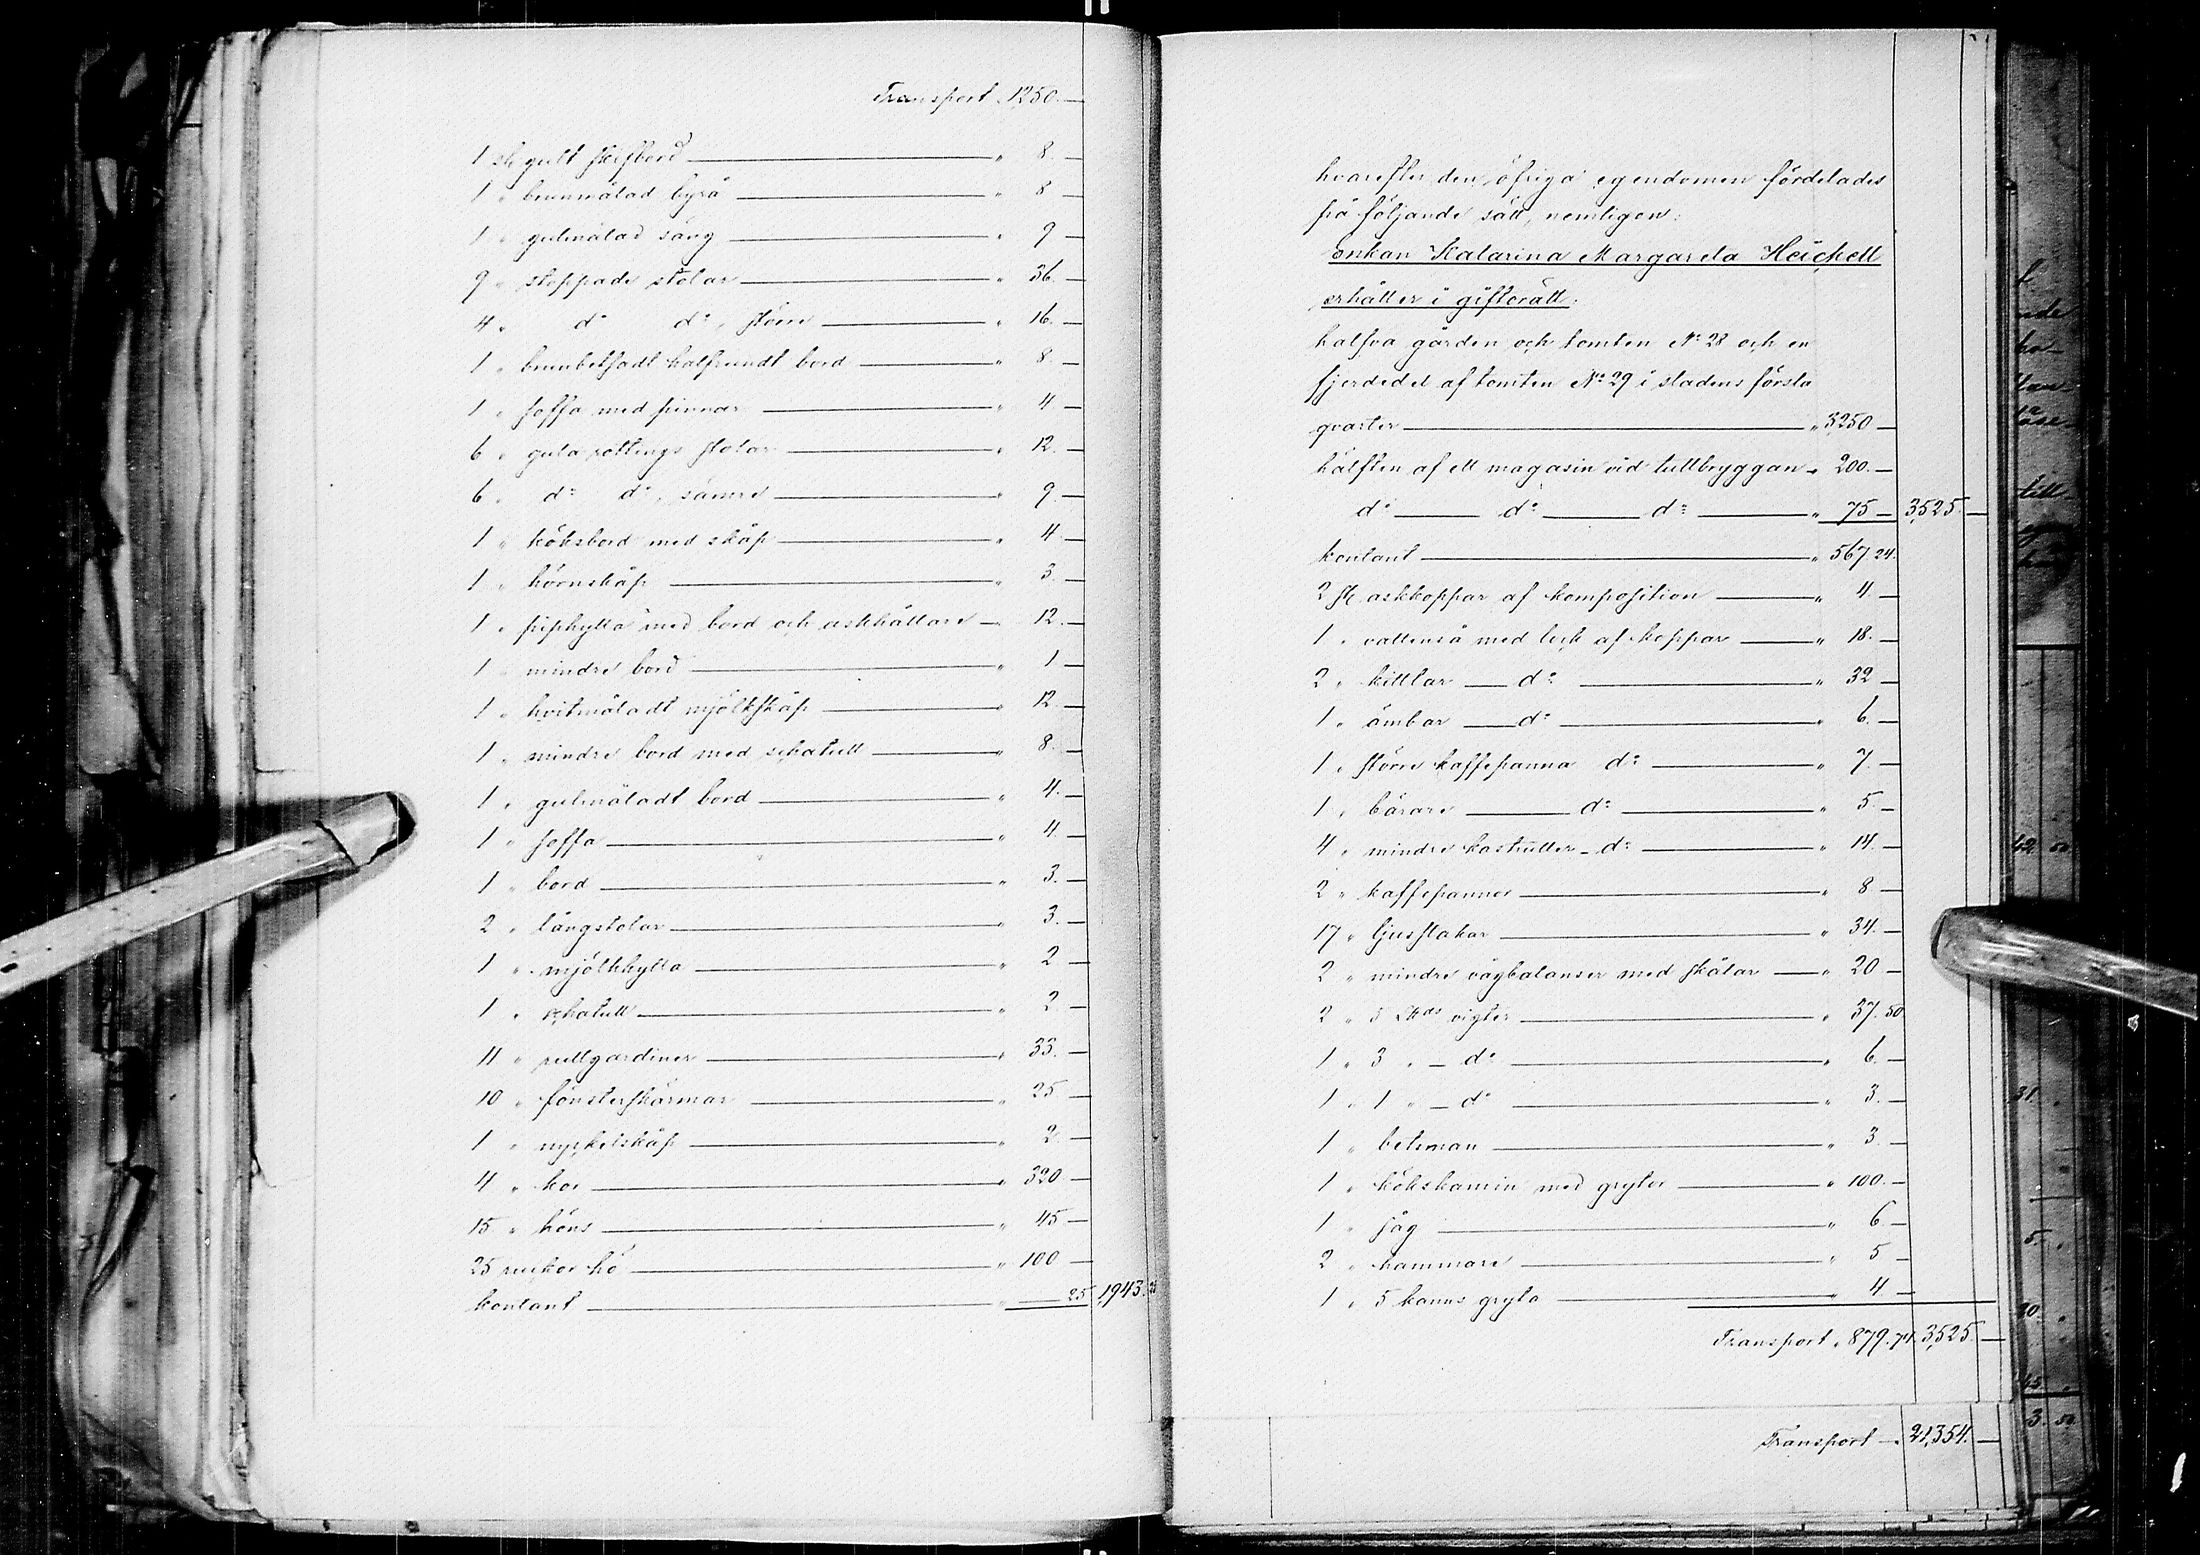 Transport „ 1250. —
1 st gult skifbord — „ 8. —
1 „ brunmålad byrå — „ 8 —
1 „ gulmålad säng — „ 9 —
9 „ stoppade stolar — „ 36. —
4 „ do do, större — „ 16. —
1 „ brunbetsadt halfrundt bord — „ 8. —
1 „ soffa med pinnar — „ 4 —
6 „ gula rottings stolar — „ 12. —
6 „ do do, sämre — „ 9 —
1 „ köksbord med skåp — „ 4. —
1 „ hörnskåp — „ 3. —
1 „ piphylla med bord och askhållare — „ 12. —
1 „ mindre bord — „ 1 —
1 „ hvitmåladt mjölkskåp — „ 12. —
1 „ mindre bord med schatull — „ 8. —
1 „ gulmåladt bord — „ 4. —
1 „ soffa — „ 4. —
1 „ bord — „ 3. —
2 „ långstolar — „ 3. —
1 „ mjölkhylla — „ 2 —
1 „ schatull — „ 2 —
11 „ rullgardiner — „ 33. —
10 „ fönsterskärmar — „ 25 —
1 „ nyckelskåp — „ 2. —
4 „ kor — „ 320 —
15 „ höns — „ 45 —
25 ruckor hö — „ 100 —
kontant — „ — 25 1,943. 25
hvarefter den öfriga egendomen fördelades
på följande sätt, nemligen:
enkan Katarina Margareta Heickell
erhåller i giftorätt:
halfva gården och tomten No 28 och en
fjerdedel af tomten No 29 i stadens första
qvarter — „ 3250 —
hälften af ett magasin vid tullbryggan „ 200. —
do — do — do — „ 75 — 3,525. —
kontant — „ 567. 24.
2 st askkoppar af komposition — „ 4 —
1 „ vattenså med lock af koppar — „ 18. —
2 „ kittlar — do — „ 32 —
1 „ ämbar — do — „ 6. —
1 „ större kaffepanna do — „ 7. —
1 „ bärare — do — „ 5. —
4 „ mindre kastruller — do — „ 14. —
2 „ kaffepannor — „ 8 —
17 „ ljusstakar — „ 34. —
2 „ mindre vågbalanser med skålar — „ 20 —
2 „ 5 vigter — „ 37. 50
1 „ 3 „ — do — „ 6. —
1 „ 1 „ — do — „ 3. —
1 „ betsman — „ 3. —
1 „ kökskamin med grytor — „ 100. —
1 „ såg — „ 6 —
2 „ hammare — „ 5 —
1 „ 5 kanns gryta — „ 4 —
Transport „ 879. 74. 3,525. —
Transport — „ 21,354. —